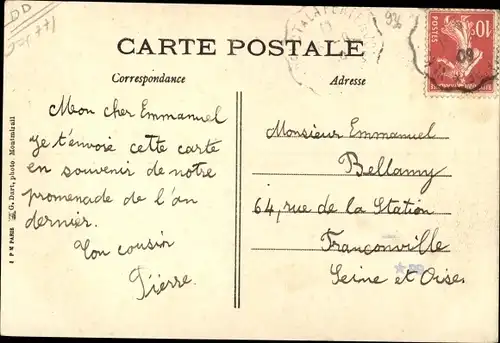 DD
CARTE POSTALE
Correspondance
Adresse
POSTES
10c
09
Mon cher Emmanuel
Je t'envoie cette carte
en souvenir de notre
promenade de l'an
dernier.
Ton cousin
Pierre.
Monsieur Emmanuel
Bellamy
64, rue de la Station
Franconville
Seine et Oise
G. Dart, photo Montmirail
PARIS